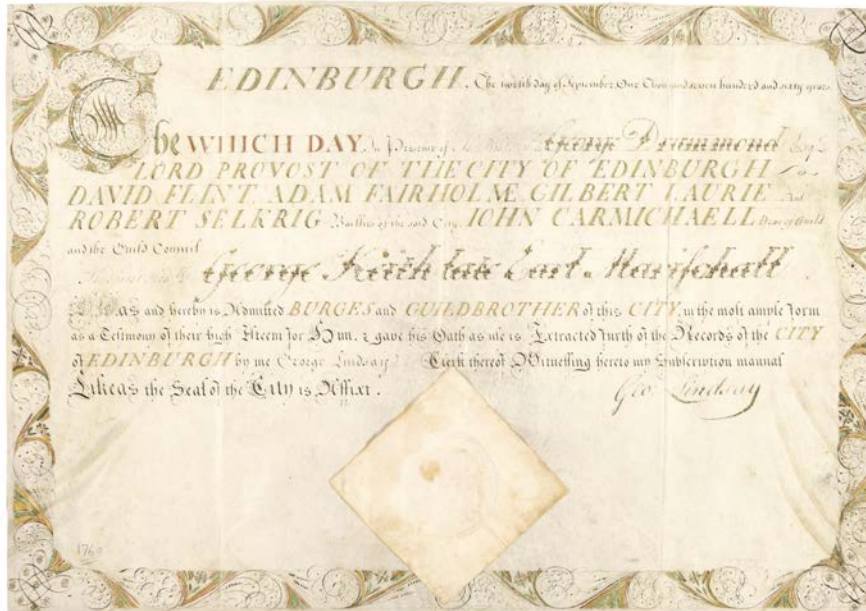 EDINBURGH. The tenth day of September One Thousand seven hundred and sixty years
The WHICH DAY In Presence of George Drummond Esqr
LORD PROVOST OF THE CITY OF EDINBURGH
DAVID FLINT ADAM FAIRHOLME GILBERT LAURIE And
ROBERT SELKRIG Baillies of the said City, IOHN CARMICHAELL Dean of Guild
and the Guild Council
George Keith late Earl Marischall
Was and hereby is Admitted BURGES and GUILDBROTHER of this CITY, in the most ample form
as a Testimony of their high Esteem for Him. & gave his Oath as use is Extracted furth of the Records of the CITY
of EDINBURGH by me George Lindsay Clerk thereof Witnessing hereto my Subscription manual
Likeas the Seal of the City is Affixt.
Geo Lindsay
1760